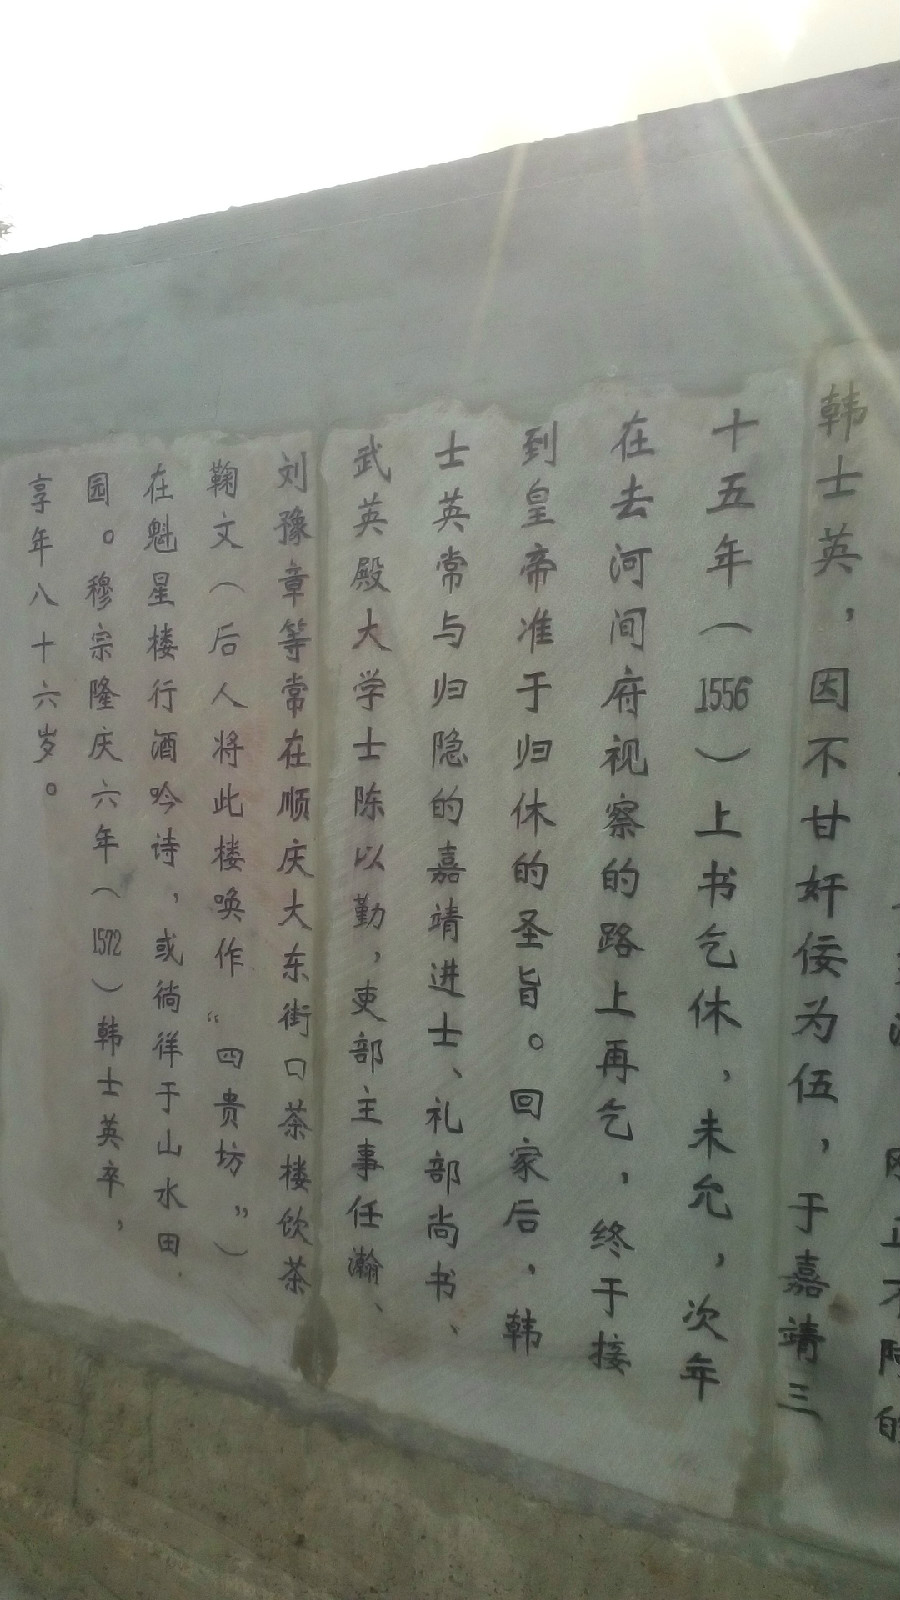 韩士英，因不甘奸佞为伍，于嘉靖三
十五年（1556）上书乞休，未允，次年
在去河间府视察的路上再乞，终于接
到皇帝准于归休的圣旨。回家后，韩
士英常与归隐的嘉靖进士、礼部尚书、
武英殿大学士陈以勤，吏部主事任瀚、
刘豫章等常在顺庆大东街口茶楼饮茶
鞠文（后人将此楼唤作“四贵坊”）
在魁星楼行酒吟诗，或徜徉于山水田
园。穆宗隆庆六年（1572）韩士英卒，
享年八十六岁。